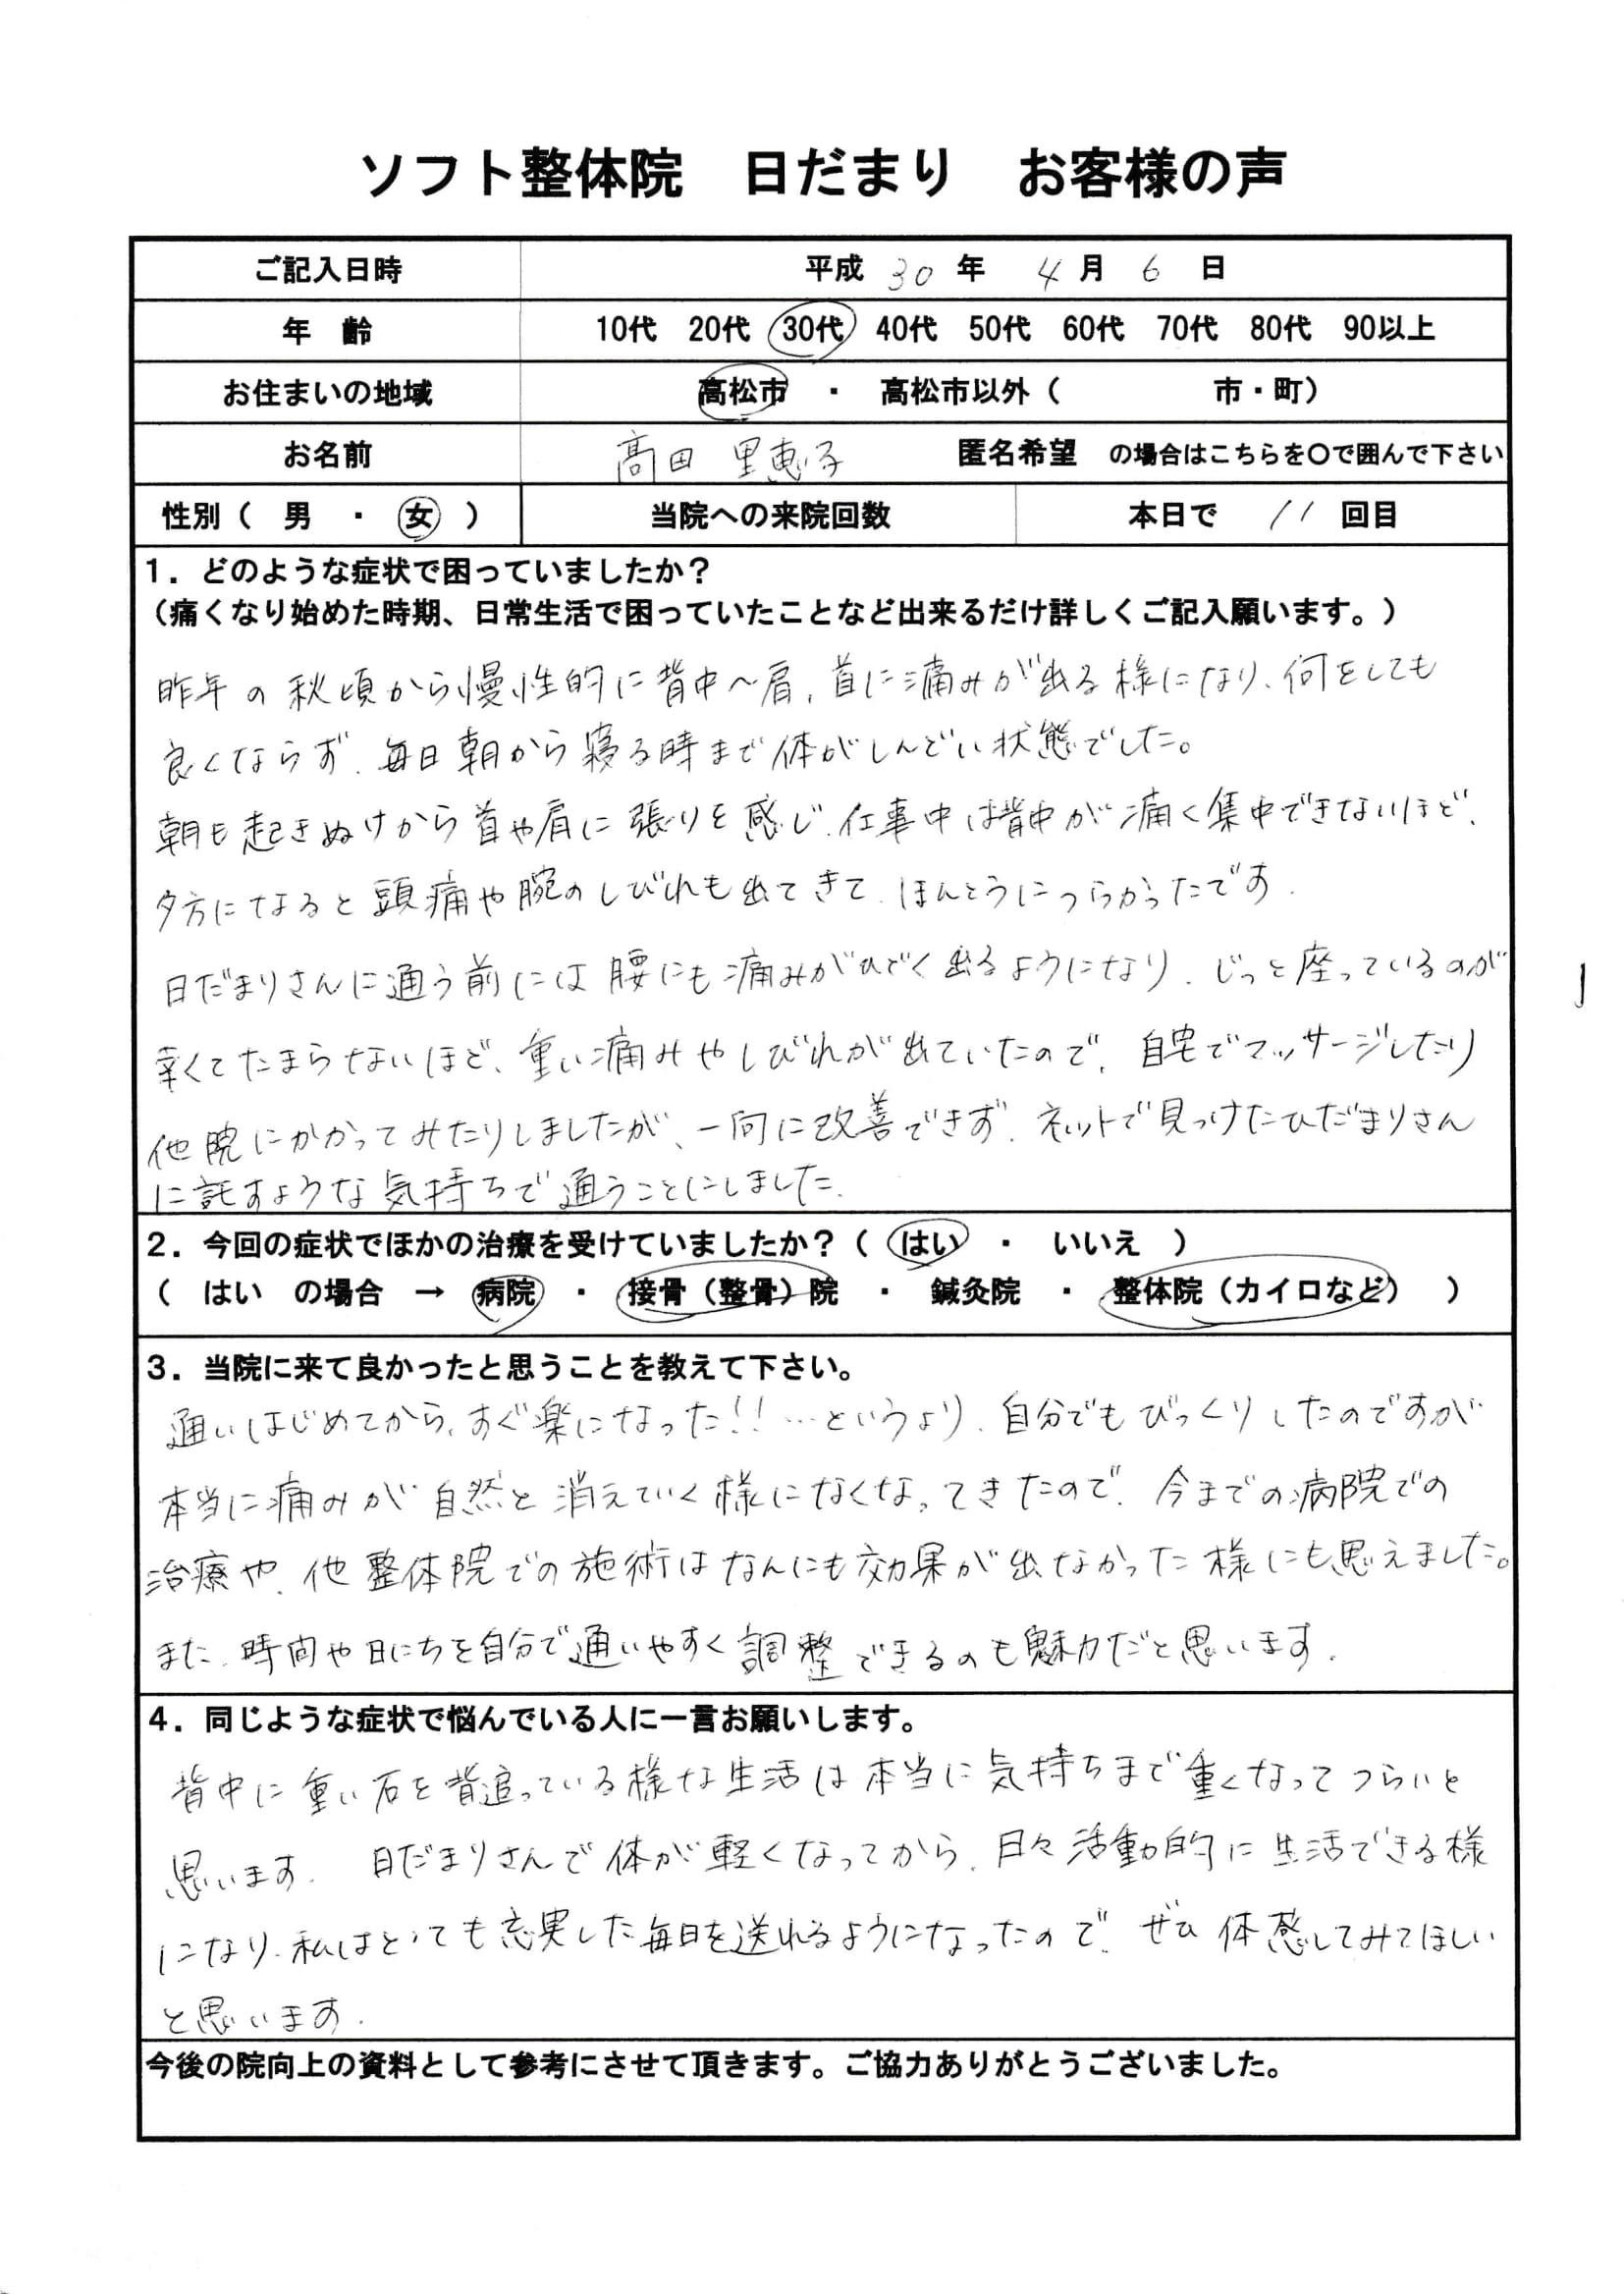 ソフト整体院　日だまり　お客様の声
ご記入日時　平成 30 年 4 月 6 日
年　齢　10代　20代　30代　40代　50代　60代　70代　80代　90以上
お住まいの地域　高松市　・　高松市以外（　　　市・町）
お名前　髙田 里恵子　匿名希望　の場合はこちらを〇で囲んで下さい
性別（　男　・　女　）　当院への来院回数　本日で 11 回目
1．どのような症状で困っていましたか？
（痛くなり始めた時期、日常生活で困っていたことなど出来るだけ詳しくご記入願います。）
昨年の秋頃から慢性的に背中～肩、首に痛みが出る様になり、何をしても
良くならず、毎日朝から寝る時まで体がしんどい状態でした。
朝も起きぬけから首や肩に張りを感じ、仕事中は背中が痛く集中できないほど、
夕方になると頭痛や腕のしびれも出てきて、ほんとうにつらかったです。
日だまりさんに通う前には腰にも痛みがひどく出るようになり、じっと座っているのが
辛くてたまらないほど、重い痛みやしびれが出ていたので、自宅でマッサージしたり
他院にかかってみたりしましたが、一向に改善できず、ネットで見つけたひだまりさん
に託すような気持ちで通うことにしました。
2．今回の症状でほかの治療を受けていましたか？（　はい　・　いいえ　）
（　はい　の場合　→　病院　・　接骨（整骨）院　・　鍼灸院　・　整体院（カイロなど）　）
3．当院に来て良かったと思うことを教えて下さい。
通いはじめてから、すぐ楽になった!!…というより、自分でもびっくりしたのですが
本当に痛みが自然と消えていく様になくなってきたので、今までの病院での
治療や、他整体院での施術はなんにも効果が出なかった様にも思えました。
また、時間や日にちを自分で通いやすく調整できるのも魅力だと思います。
4．同じような症状で悩んでいる人に一言お願いします。
背中に重い石を背追っている様な生活は本当に気持ちまで重くなってつらいと
思います。日だまりさんで体が軽くなってから、日々活動的に生活できる様
になり、私はとっても充実した毎日を送れるようになったので、ぜひ体感してみてほしい
と思います。
今後の院向上の資料として参考にさせて頂きます。ご協力ありがとうございました。